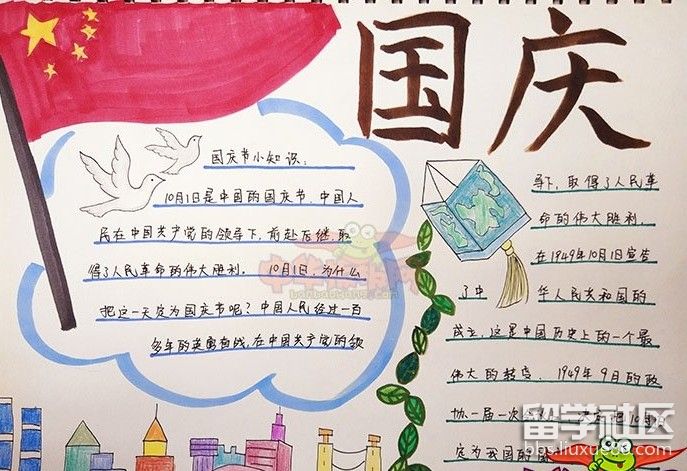 国庆
国庆节小知识：
10月1日是中国的国庆节，中国人
民在中国共产党的领导下，前赴后继，取
得了人民革命的伟大胜利。 10月1日，为什么
把这一天定为国庆节呢？中国人民经过一百
多年的英勇奋战，在中国共产党的领
导下，取得了人民革
命的伟大胜利。
在1949年10月1日宣告
了中华人民共和国的
成立，这是中国历史上的一个最
伟大的转变，1949年9月的政
协一届一次
定为我国的国
留学社区
bbs.liuxue86.com